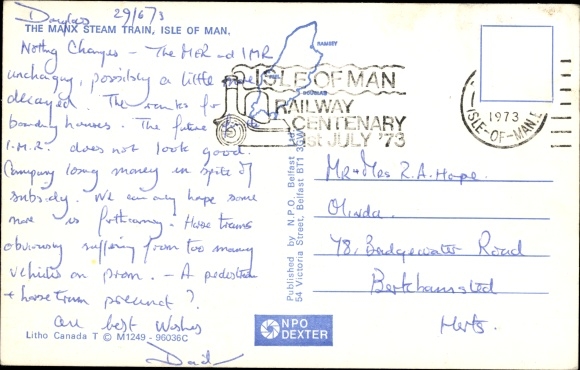 Douglas 29/6/73
THE MANX STEAM TRAIN, ISLE OF MAN.
Nothing Changes - The MER and IMR
unchanging, possibly a little more
decayed. The same for
boarding houses. The future of the
I.M.R. does not look good.
Company losing money in spite of
subsidy. We can only hope some
more is forthcoming. Horse trams
obviously suffering from too many
vehicles on prom. - A pedestrian
+ horse tram precinct?
all best Wishes
David
Litho Canada T © M1249 - 96036C
Published by N.P.O. Belfast
54 Victoria Street, Belfast BT1
NPO
DEXTER
RAMSEY
PEEL
DOUGLAS
ISLE OF MAN
RAILWAY
CENTENARY
1st JULY '73
1973
ISLE-OF-MAN
Mr + Mrs R.A. Hope.
Olinda.
78, Bridgewater Road
Berkhamsted
Herts.